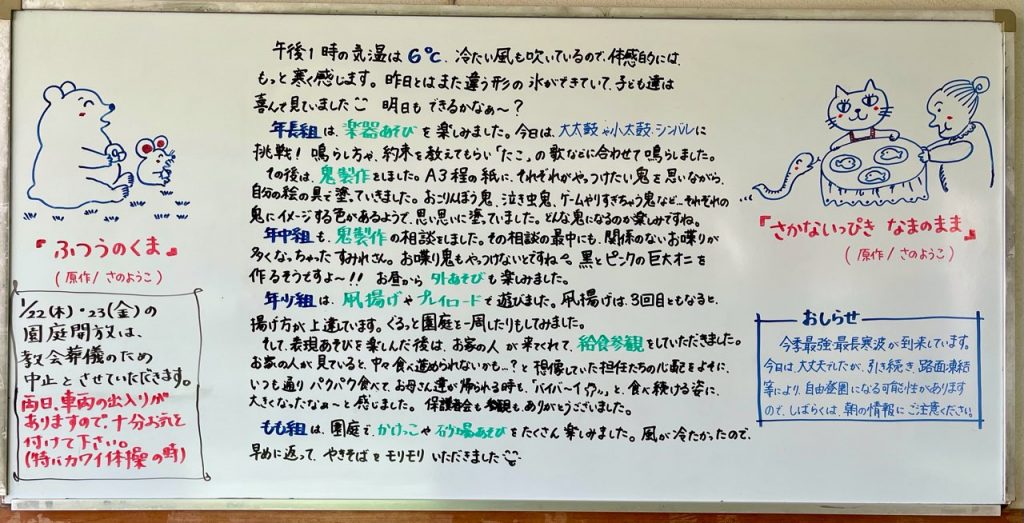 午後1時の気温は6℃。冷たい風も吹いているので、体感的には、
もっと寒く感じます。昨日とはまた違う形の氷ができていて、子ども達は
喜んで見ていました 明日もできるかなぁ～？
年長組は、楽器あそびを楽しみました。今日は、大太鼓や小太鼓・シンバルに
挑戦！鳴らし方や、約束を教えてもらい「たこ」の歌などに合わせて鳴らしました。
その後は、鬼製作をしました。A3程の紙に、それぞれがやっつけたい鬼を思いながら、
自分の絵の具で塗っていきました。おこりんぼう鬼、泣き虫鬼、ゲームやりすぎちゃう鬼など…それぞれの
鬼にイメージする色があるようで、思い思いに塗っていました。どんな鬼になるのか楽しみですね。
年中組も、鬼製作の相談をしました。その相談の最中にも、関係のないお喋りが
多くなっちゃったすみれさん。お喋り鬼もやっつけないとですね 黒とピンクの巨大オニを
作るそうですよ～!! お昼から外あそびも楽しみました。
年少組は、凧揚げやプレイロードで遊びました。凧揚げは、3回目ともなると、
揚げ方が上達しています。ぐるっと園庭を一周したりもしてみました。
そして、表現あそびを楽しんだ後は、お家の人が来てくれて、給食参観をしていただきました。
お家の人が見ていると、中々食べ進められないかも…？と想像していた担任たちの心配をよそに、
いつも通りパクパク食べて、お母さん達が帰られる時も、"バイバーイ"と、食べ続ける姿に、
大きくなったなぁ～と感じました。保護者会も参観も、ありがとうございました。
もも組は、園庭で、かけっこや砂場あそびをたくさん楽しみました。風が冷たかったので、
早めに返って、やきそばをモリモリいただきました
『ふつうのくま』
(原作/さのようこ)
1/22(木)・23(金)の
園庭開放は、
教会葬儀のため
中止とさせていただきます。
両日、車両の出入りが
ありますので、十分お気を
付けて下さい。
(特にカワイ体操の時)
『さかないっぴき なまのまま』
(原作/さのようこ)
おしらせ
今季最強・最長寒波が到来しています。
今日は大丈夫でしたが、引き続き、路面凍結
等により、自由登園になる可能性があります
ので、しばらくは、朝の情報にご注意ください。